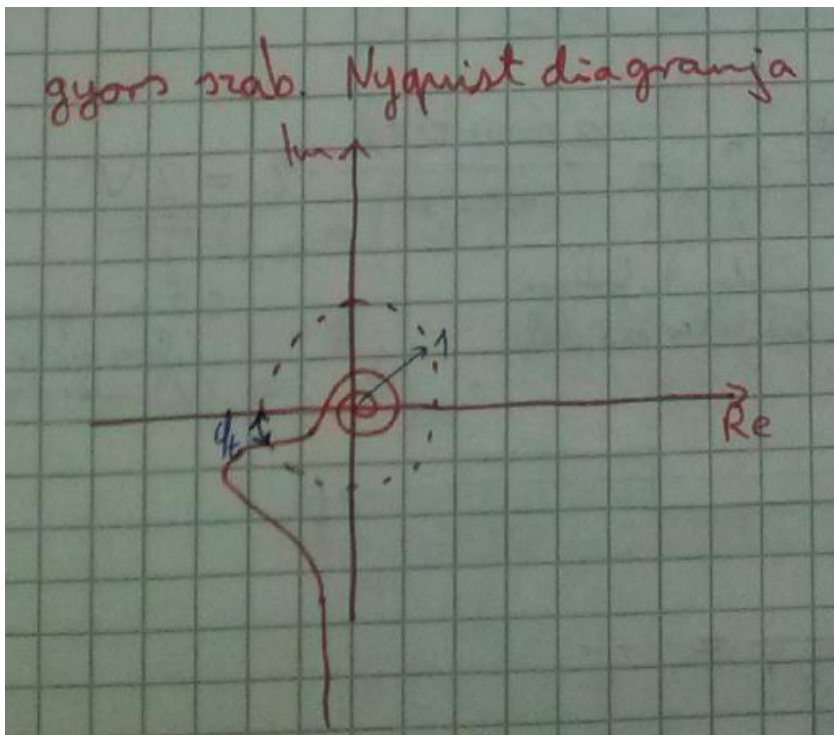 gyors szab. Nyquist diagramja
Im
1
φt
Re